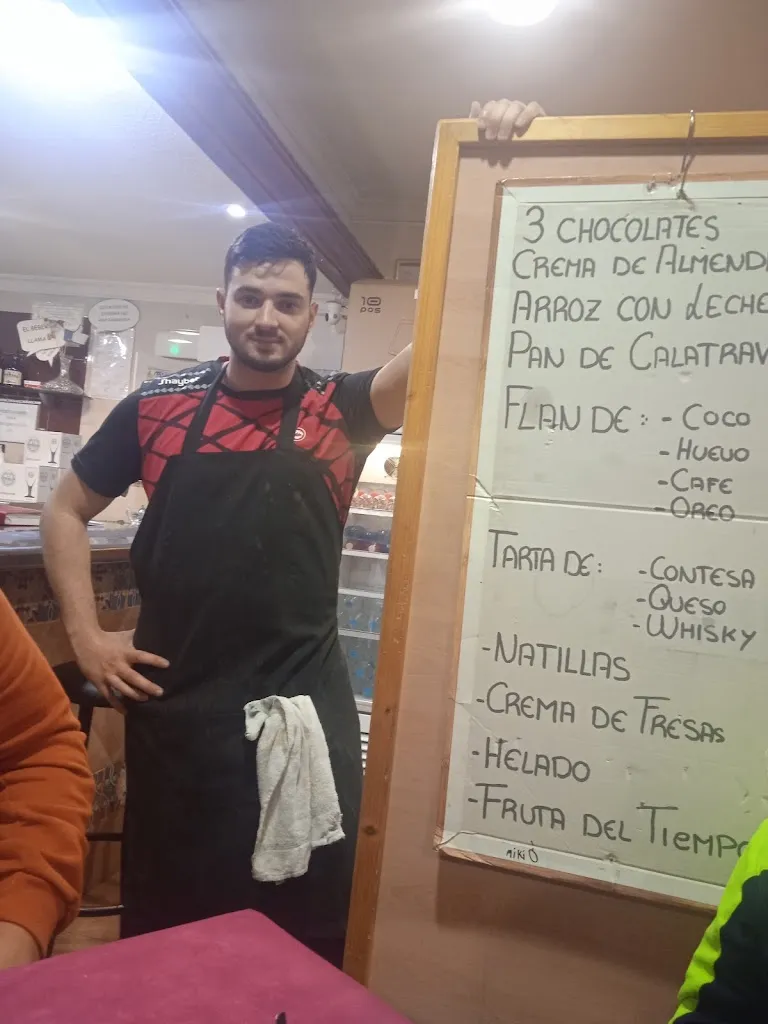 3 CHOCOLATES
CREMA DE ALMEND
ARROZ CON LECHE
PAN DE CALATRAV
FLAN DE: - COCO
- HUEVO
- CAFE
- OREO
TARTA DE: - CONTESA
- QUESO
- WHISKY
- NATILLAS
- CREMA DE FRESAS
- HELADO
- FRUTA DEL TIEMPO
10
POS
Jhayber
EL BEBER
LLAMA